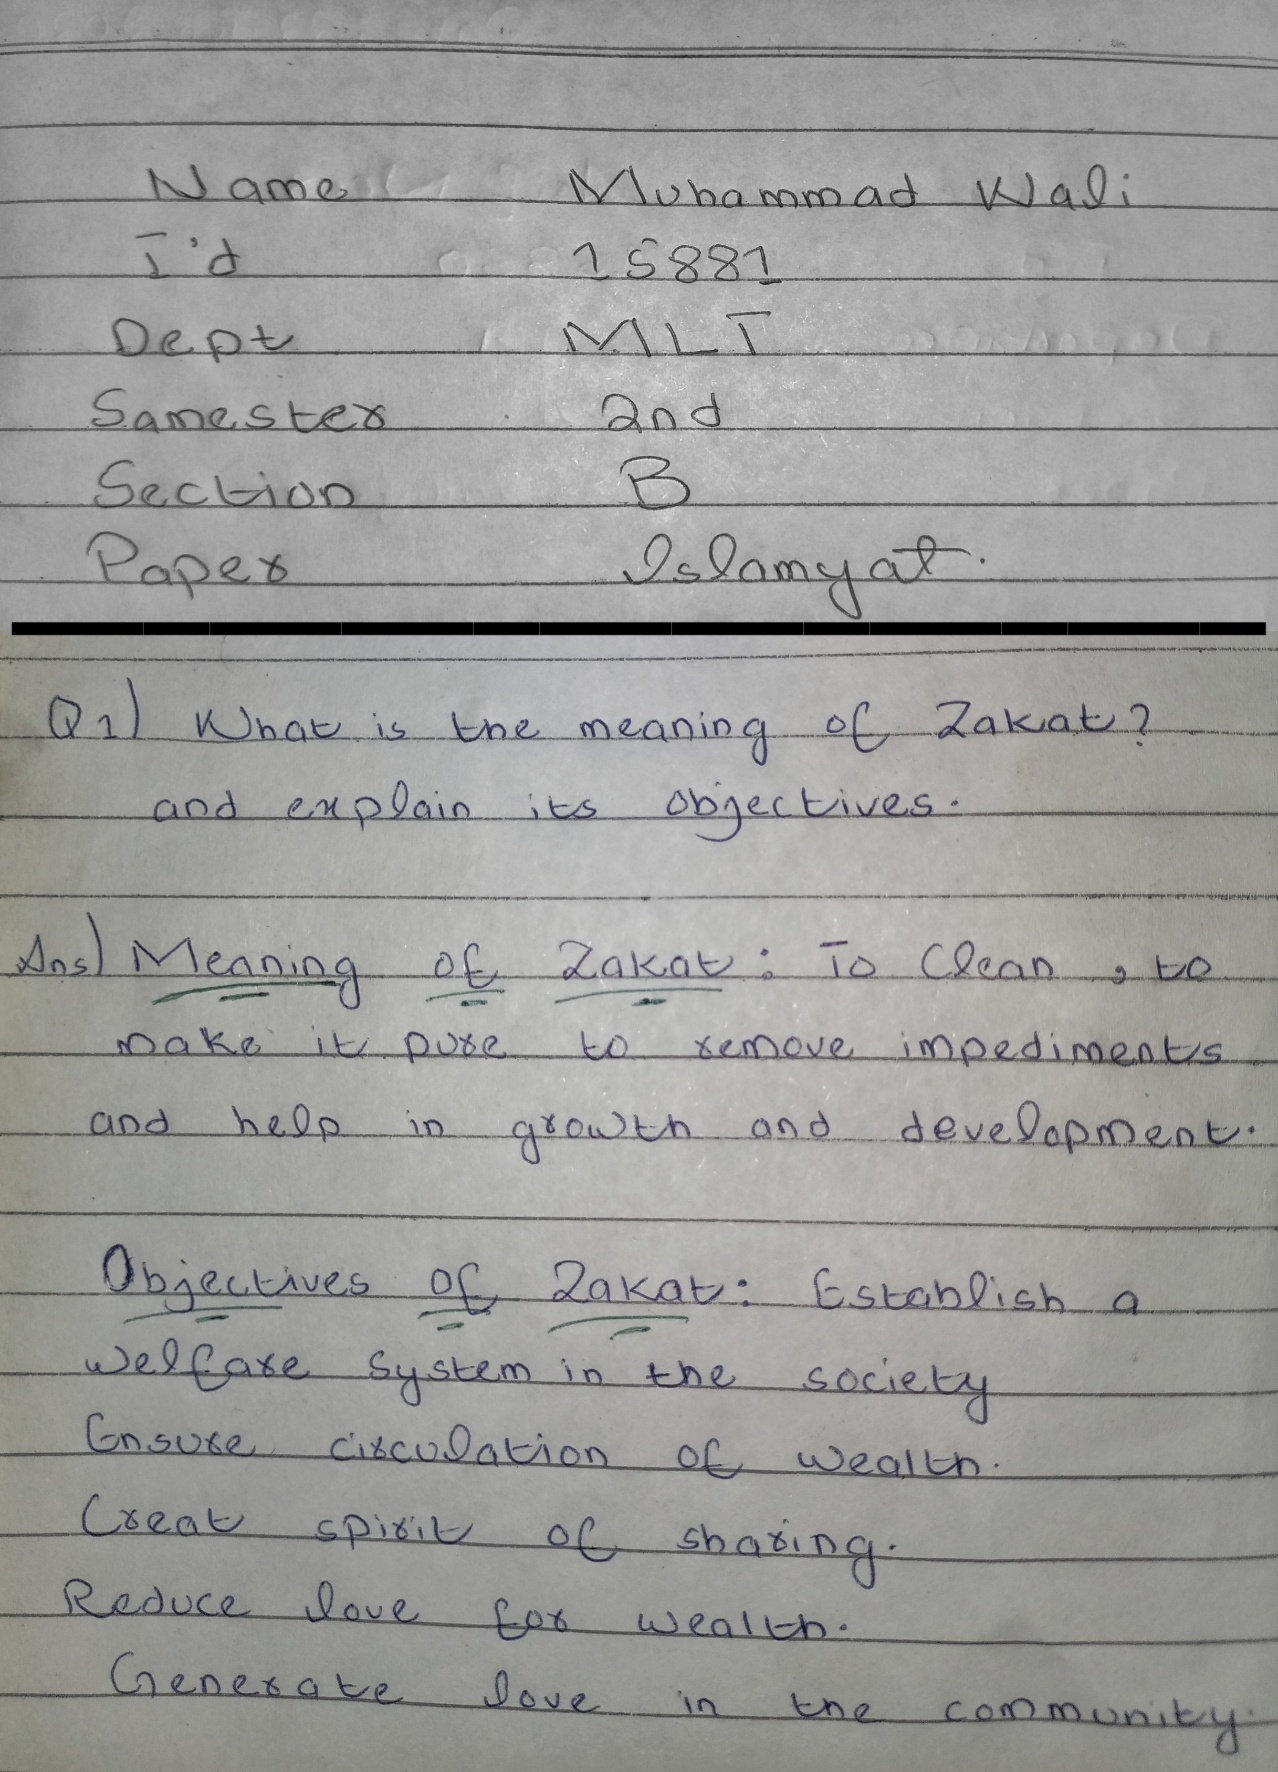 Name Muhammad Wali
I'd 15881
Dept MLT
Samester 2nd
Section B
Paper Islamyat.
Q1) What is the meaning of Zakat?
and explain its objectives.
Ans) Meaning of Zakat: To Clean, to
make it pure to remove impediments
and help in growth and development.
Objectives of Zakat: Establish a
welfare system in the society
Ensure circulation of wealth.
Creat spirit of sharing.
Reduce love for wealth.
Generate love in the community.